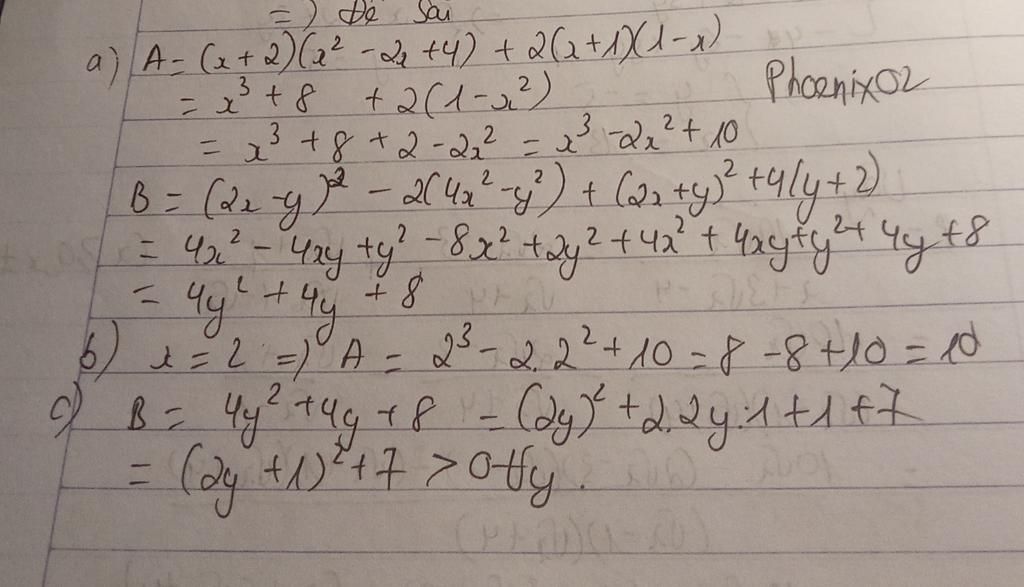 =) Đề sai
a) A = (x+2)(x² - 2x + 4) + 2(x+1)(1-x)
= x³ + 8 + 2(1-x²)
PhoenixO2
= x³ + 8 + 2 - 2x² = x³ - 2x² + 10
B = (2x-y)² - 2(4x² - y²) + (2x+y)² + 4(y+2)
= 4x² - 4xy + y² - 8x² + 2y² + 4x² + 4xy + y² + 4y + 8
= 4y² + 4y + 8
b) x = 2 =) A = 2³ - 2.2² + 10 = 8 - 8 + 10 = 10
c) B = 4y² + 4y + 8 = (2y)² + 2.2y.1 + 1 + 7
= (2y+1)² + 7 > 0 ∀y.